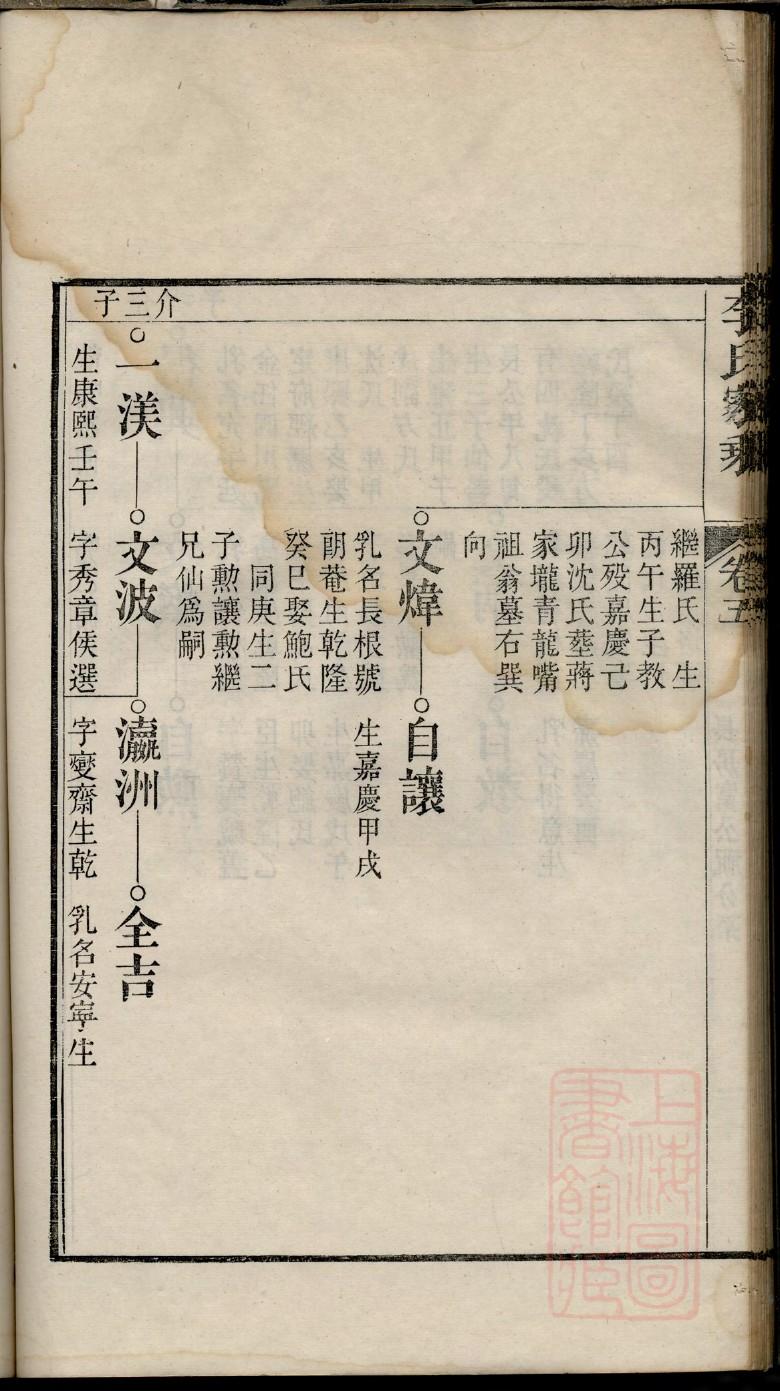 李氏家乘
卷五
繼羅氏　生
丙午生子教
公殁嘉慶己
卯沈氏塟蔣
家壠青龍嘴
祖翁墓右巽
向
文煒
自讓
乳名長根號
朗菴生乾隆
癸巳娶鮑氏
同庚生二
子勲讓勲繼
兄仙爲嗣
生嘉慶甲戌
介三子
一渼
文波
瀛洲
全吉
生康熙壬午
字秀章候選
字變齋生乾
乳名安寧生
上海圖
書館藏